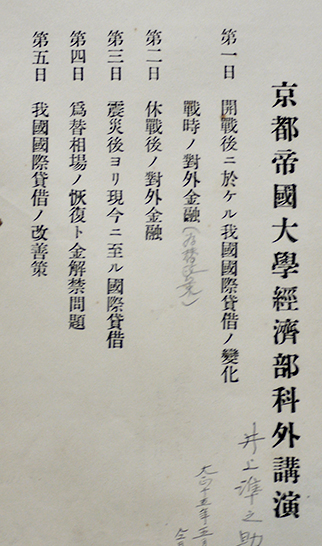 京都帝國大學經濟部科外講演
第一日 開戰後ニ於ケル我國國際貸借ノ變化
戰時ノ對外金融
第二日 休戰後ノ對外金融
第三日 震災後ヨリ現今ニ至ル國際貸借
第四日 爲替相場ノ恢復ト金解禁問題
第五日 我國國際貸借ノ改善策
井上準之助
大正十五年三月